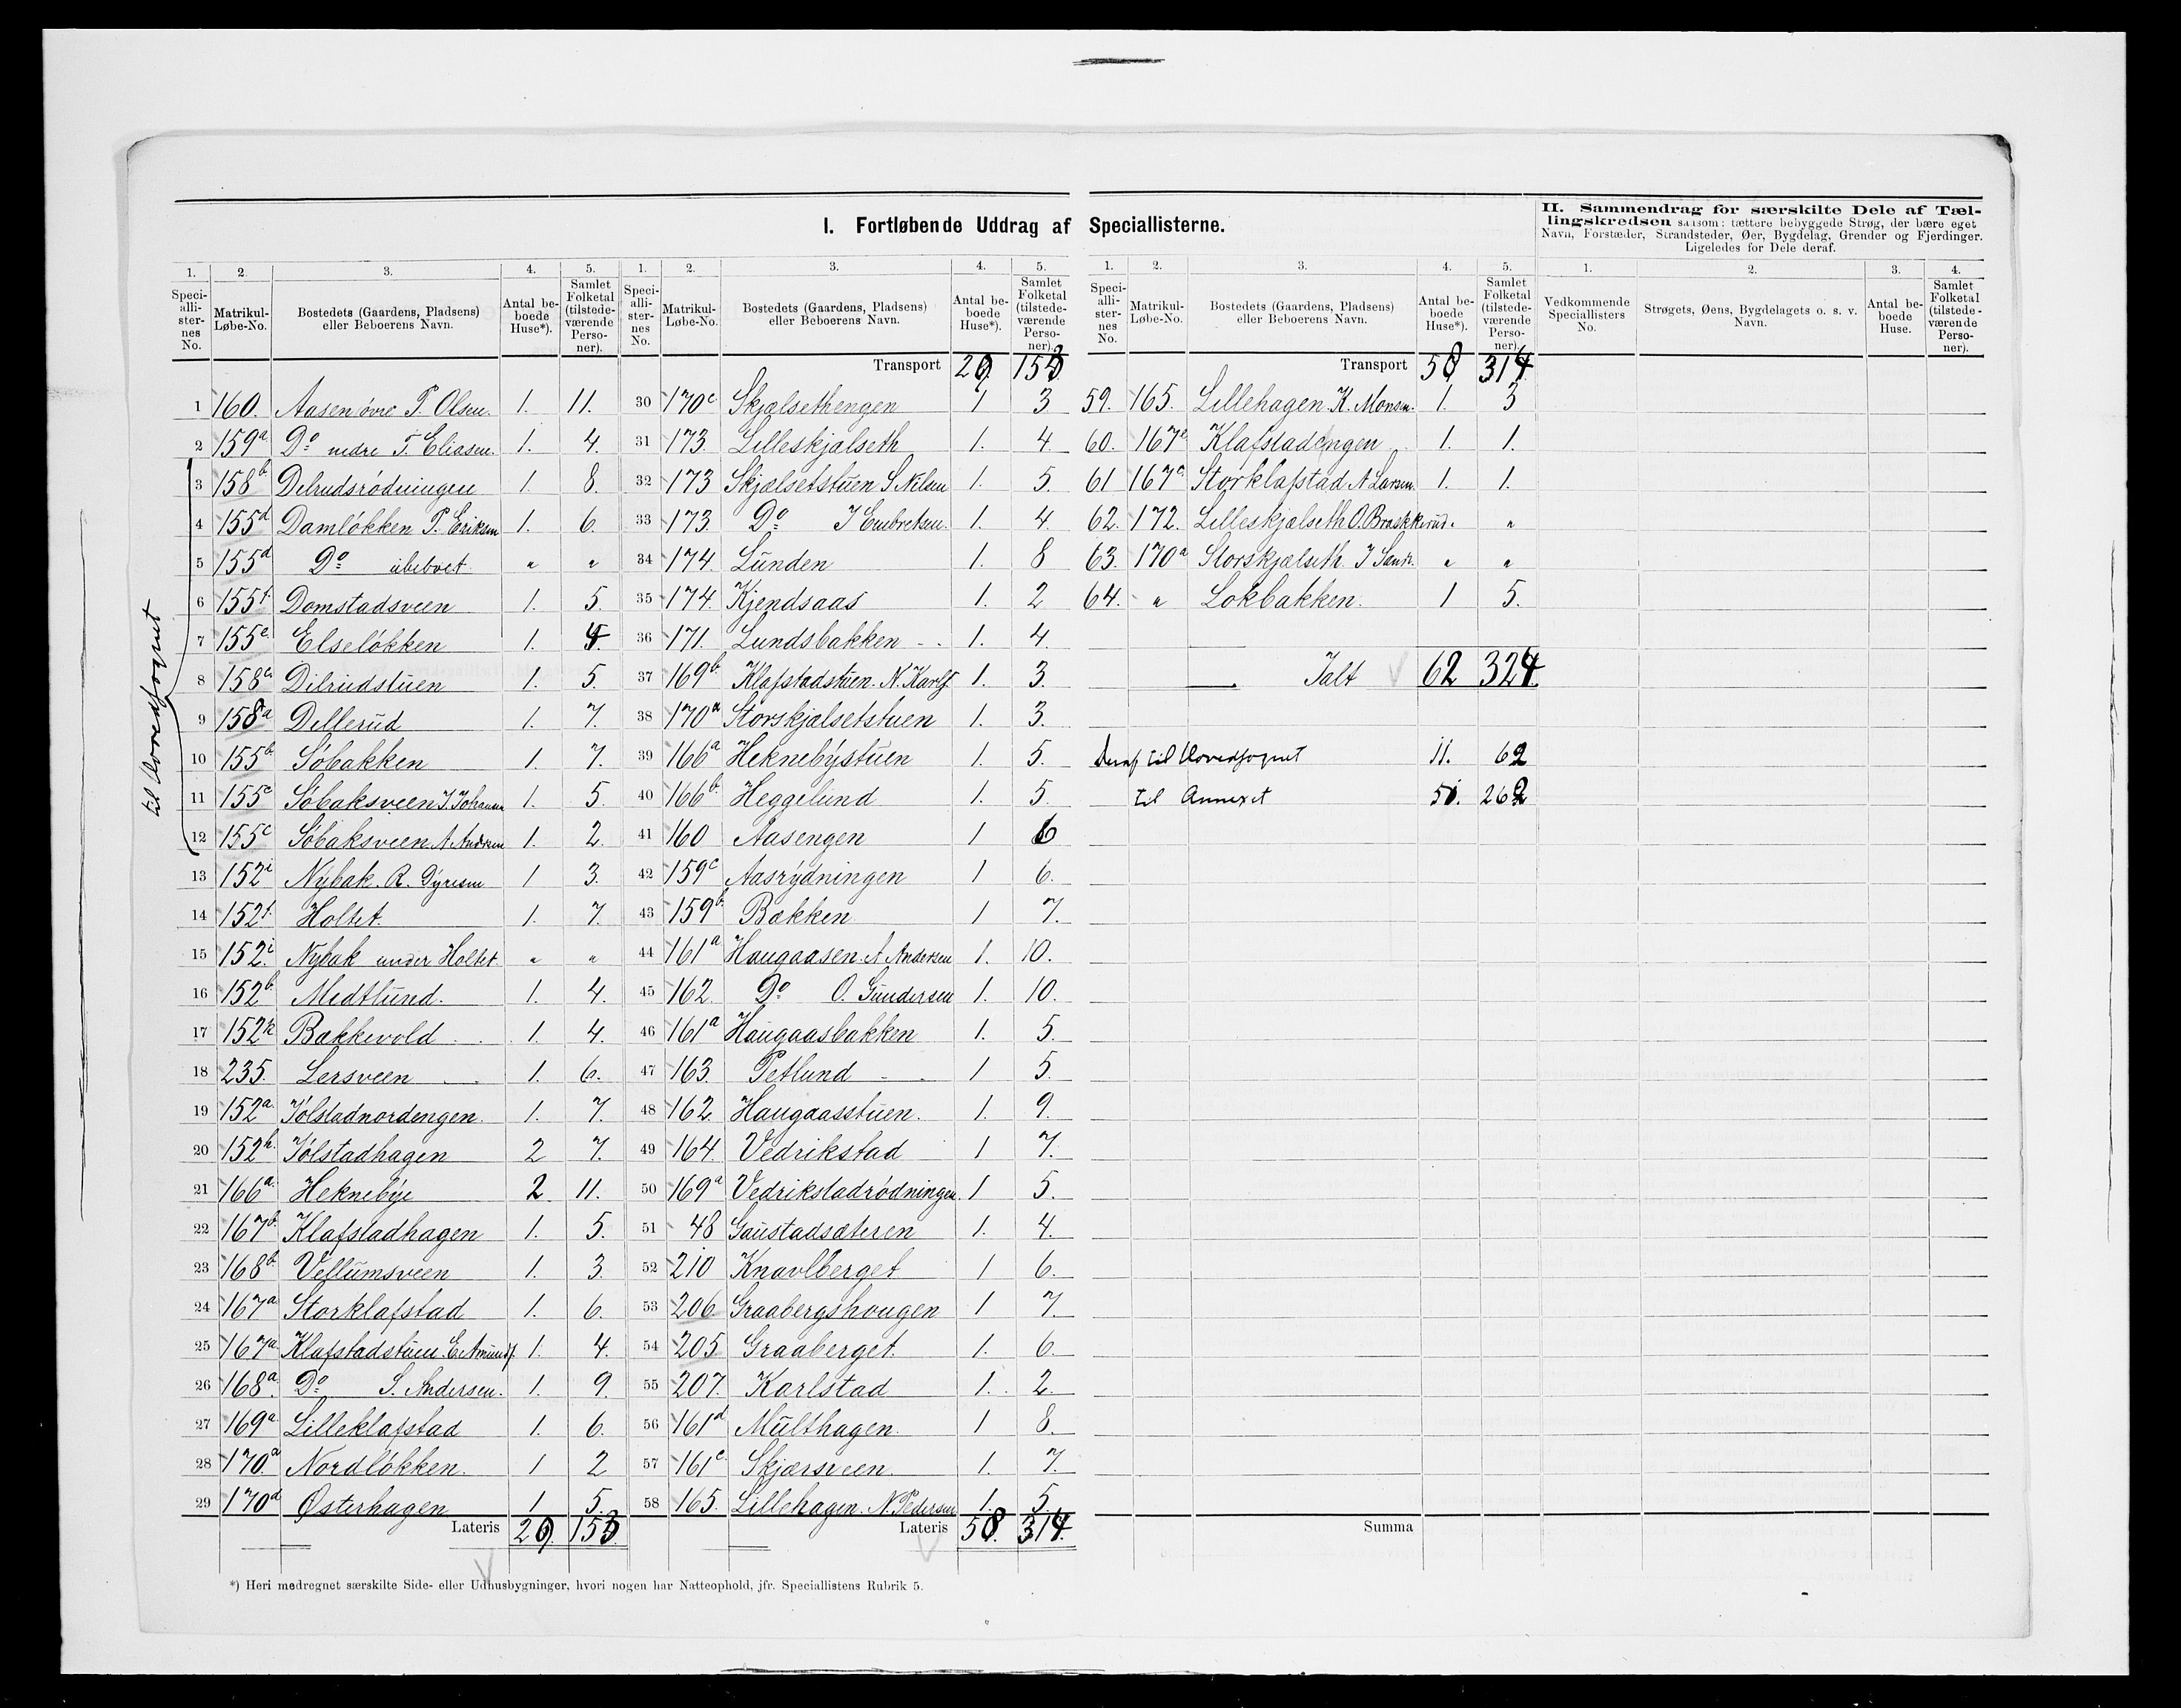 I. Fortløbende Uddrag af Speciallisterne.
II. Sammendrag for særskilte Dele af Tællingskredsen saasom: tættere bebyggede Strøg, der bære eget Navn, Forstæder, Strandsteder, Øer, Bygdelag, Grender og Fjerdinger. Ligeledes for Dele deraf.
1. 2. 3. 4. 5. 1. 2. 3. 4. 5. 1. 2. 3. 4. 5. 1. 2. 3. 4.
Speciallisternes No. Matrikul-Løbe-No. Bostedets (Gaardens, Pladsens) eller Beboerens Navn. Antal beboede Huse*). Samlet Folketal (tilstedeværende Personer).
Speciallisternes No. Matrikul-Løbe-No. Bostedets (Gaardens, Pladsens) eller Beboerens Navn. Antal beboede Huse*). Samlet Folketal (tilstedeværende Personer).
Speciallisternes No. Matrikul-Løbe-No. Bostedets (Gaardens, Pladsens) eller Beboerens Navn. Antal beboede Huse*). Samlet Folketal (tilstedeværende Personer).
Vedkommende Speciallisters No. Strøgets, Øens, Bygdelagets o. s. v. Navn. Antal beboede Huse. Samlet Folketal (tilstedeværende Personer).
til Hovedsognet
1 160. Aasen øvre P. Olsen. 1. 11.
2 159a Do nedre T. Eliasen. 1. 4.
3 158b. Delrudsrødningen 1. 8.
4 155d Damløkken P. Eriksen 1. 6.
5 155d Do ubeboet " "
6 155f. Domstadsveen 1. 5.
7 155e. Elseløkken 1. 4.
8 158c. Dilrudstuen 1. 5.
9 158a Dellerud 1. 7.
10 155b. Søbakken 1. 7.
11 155c Søbaksveen J. Johansen 1. 5.
12 155c Søbaksveen A. Andersen 1. 2.
13 152i Nybak. R. Dyresen 1 3.
14 152f. Holtet. 1. 7.
15 152i. Nybak under Holtet. " "
16 152b. Medtlund. 1. 4.
17 152k Bakkevold 1. 4.
18 235. Lersveen 1. 6.
19 152a. Jølstadnordengen. 1. 7.
20 152h. Jølstadhagen 2 7.
21 166a. Heknebye 2. 11.
22 167b. Klafstadhagen 1. 5.
23 168b. Vellumsveen 1. 3.
24 167a Storklafstad 1. 6.
25 167a Klafstadstuen. E. Amunds. 1. 4.
26 168a. Do S. Andersen. 1. 9.
27 169a Lilleklafstad 1. 6.
28 170a Nordløkken. 1 2
29 170d Østerhagen 1 5.
Lateris 29. 153.
Transport 29. 153
30 170c Skjælsethengen 1 3
31 173. Lilleskjalseth 1. 4
32 173 Skjælsetstuen S. Nilsen 1. 5.
33 173. Do J Embretsen. 1. 4.
34 174 Lunden 1. 8
35 174. Kjendsaas 1. 2
36 171. Lundsbakken 1. 4.
37 169b. Klafstadstuen. N. Karls. 1. 3.
38 170a Storskjalsetstuen 1. 3.
39 166a Heknebystuen 1. 5.
40 166b. Heggelund 1. 5.
41 160 Aasengen 1 6
42 159c Aasrydningen 1 6.
43 159b. Bakken 1 7.
44 161a Haugaasen. A Andersen 1. 10.
45 162. Do O. Gundersen 1. 10.
46 161a Haugaasbakken 1. 5.
47 163. Petlund 1 5.
48 162. Haugaasstuen. 1. 9.
49 164. Vedrikstad 1 7.
50 169a Vedrikstadrødningen. 1 5.
51 48 Gaustadsæteren 1. 4.
52 210 Knavlberget 1 6.
53 206 Graabergshougen 1 7.
54 205 Graaberget. 1. 6.
55 207. Karlstad 1. 2.
56 161d Multhagen. 1 8.
57 161e. Skjærsveen. 1. 7.
58 165. Lillehagen. N. Pedersen 1. 5.
Lateris 58. 314.
Transport 58 314
59. 165. Lillehagen. K. Monsen. 1. 3
60. 167e Klafstadengen 1. 1.
61 167c. Storklafstad A Larsen. 1. 1.
62. 172. Lilleskjalseth O. Braskkerud. "
63. 170a Storskjælseth. J " "
64. " Lokbakken. 1 5.
Ialt 62 324.
deraf til Hovedsognet 11. 62
til Annexet 51. 262
Summa
*) Heri medregnet særskilte Side- eller Udhusbygninger, hvori nogen har Natteophold, jfr. Speciallistens Rubrik 5.